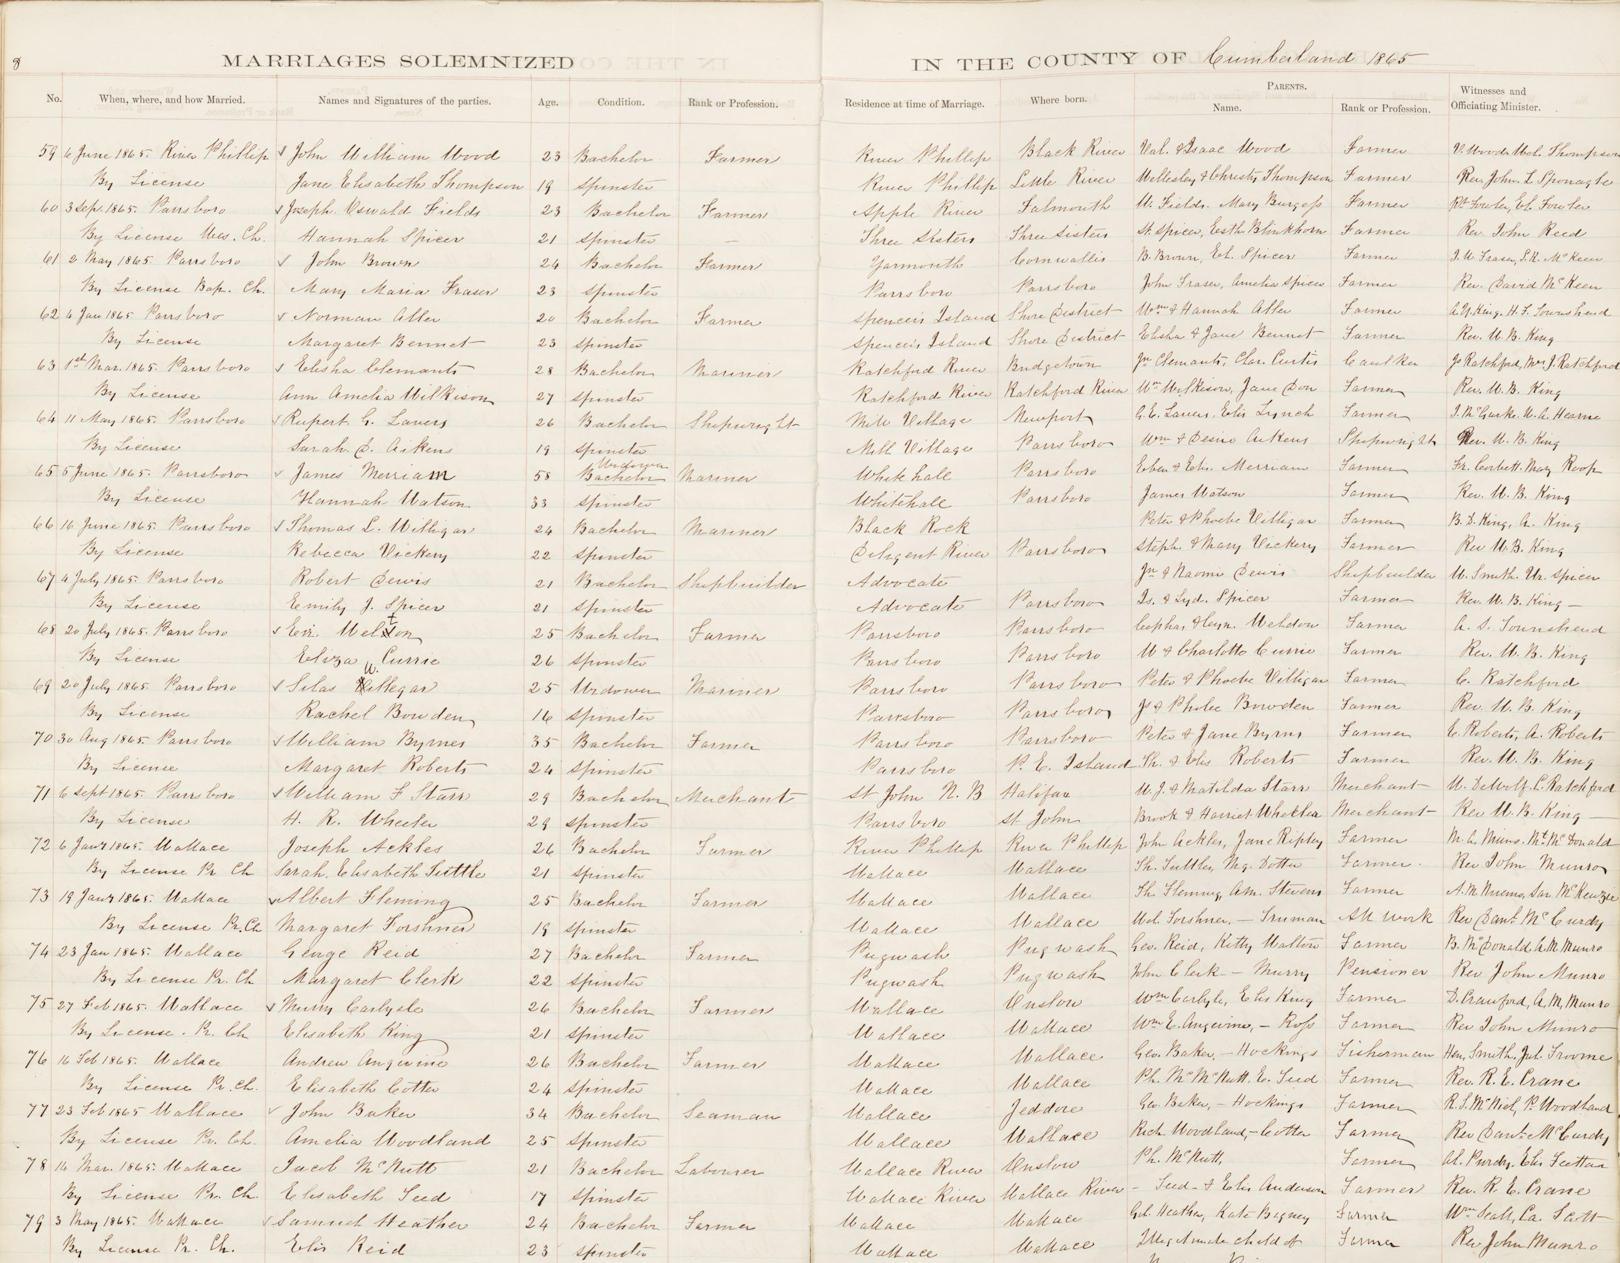 8
MARRIAGES SOLEMNIZED IN THE COUNTY OF Cumberland 1865
No. When, where, and how Married. Names and Signatures of the parties. Age. Condition. Rank or Profession. Residence at time of Marriage. Where born. PARENTS. Name. Rank or Profession. Witnesses and Officiating Minister.
59 6 June 1865. River Phillip John William Wood 23 Bachelor Farmer River Phillip Black River Val. & Isaac Wood Farmer Thompson
By License Jane Elisabeth Thompson 19 Spinster River Phillip Little River Wellesley & Christy Thompson Farmer Rev. John L Sponagle
60 3 Sep. 1865. Parrsboro Joseph Oswald Fields 23 Bachelor Farmer Apple River Falmouth W. Fields. Mary Burgess Farmer Rt Fowler, El. Fowler
By License Wes. Ch. Hannah Spicer 21 Spinster – Three Sisters Three Sisters St. Spicer, Esth Blinkhorn Farmer Rev. John Reed
61 2 May 1865 Parrsboro John Brown 24 Bachelor Farmer Yarmouth Cornwallis B. Brown, El. Spicer Farmer J. W Fraser, McKeen
By License Bap. Ch. Mary Maria Fraser 23 Spinster Parrsboro Parrsboro John Fraser, Amelia Spicer Farmer Rev. David McKeen
62 6 Jan 1865 Parrsboro Norman Atter 20 Bachelor Farmer Spencers Island Shore District Wm & Hannah Atter Farmer King. H. F. Townshend
By License Margaret Bennet 23 Spinster Spencers Island Shore District Elisha & Jane Bennet Farmer Rev. W. B. King
63 1st Mar. 1865 Parrsboro Elisha Clemants 28 Bachelor Mariner Ratchford River Bridgetown Jn Clemants, Clar. Curtis Caulker J. Ratchford, Wm. J. Ratchford
By License Ann Amelia Wilkison 27 Spinster Ratchford River Ratchford River Wm Wilkison, Jane Don Farmer Rev. W. B. King
64 11 May 1865 Parrsboro Rupert G. Lavers 26 Bachelor Shipwright Mill Village Newport G. E. Lavers, Elis Lynch Farmer W. A. Hearne
By License Sarah D. Aikens 19 Spinster Mill Village Parrsboro Wm & Desire Aikens Shipwright Rev. W. B. King
65 5 June 1865. Parrsboro James Merriam 58 Widower Bachelor Mariner Whitehall Parrsboro Eben & Elis. Merriam Farmer Fr. Corbett. Mary Roop
By License Hannah Watson 33 Spinster Whitehall Parrsboro James Watson Farmer Rev. W. B. King
66 16 June 1865 Parrsboro Thomas L. Willigar 24 Bachelor Mariner Black Rock Peter & Phoebe Villigar Farmer B. D. King, A. King
By License Rebecca Vickery 22 Spinster Diligent River Parrsboro Steph. & Mary Vickery Farmer Rev W. B. King
67 4 July 1865. Parrsboro Robert Dewis 21 Bachelor Shipbuilder Advocate Jn & Naomi Dewis Shipbuilder W. Smith. Spicer
By License Emily J. Spicer 21 Spinster Advocate Parrsboro Is. & Lyd. Spicer Farmer Rev. W. B. King –
68 20 July 1865. Parrsboro Welton 25 Bachelor Farmer Parrsboro Parrsboro Cephas Weldon Farmer A. S. Townshend
By License Eliza Currie 26 Spinster Parrsboro Parrsboro W & Charlotte Currie Farmer Rev. W. B. King
69 20 July 1865. Parrsboro Silas Willegar 25 Widower Mariner Parrsboro Parrsboro Peter & Phoebe Villigar Farmer C. Ratchford
By License Rachel Bowden 16 Spinster Parrsboro Parrsboro Js & Phobe Bowden Farmer Rev. W. B. King
70 30 Aug 1865. Parrsboro William Byrnes 35 Bachelor Farmer Parrsboro Parrsboro Peter & Jane Byrns Farmer C. Roberts, A. Roberts
By License Margaret Roberts 24 Spinster Parrsboro P. E. Island Th. & Elis Roberts Farmer Rev. W. B. King
71 6 Sept 1865 Parrsboro William F Starr 29 Bachelor Merchant St John N. B Halifax W. J. & Matilda Starr Merchant W. DeWolf. C. Ratchford
By License H. R. Wheeler 29 Spinster Parrsboro St. John Brook & Harriet Wheeler Merchant Rev W. B. King –
72 6 Jany 1865. Wallace Joseph Ackles 26 Bachelor Farmer River Phillip River Phillip John Ackles, Jane Ripley Farmer McDonald
By License Pr Ch Sarah. Elisabeth Tuttle 21 Spinster Wallace Wallace Th. Tuttle, Mg. Dotter Farmer. Rev John Munro
73 19 Jany 1865. Wallace Albert Fleming 25 Bachelor Farmer Wallace Wallace Th. Fleming, Am. Stevens Farmer A. M Munro, McKenzie
By License Pr. Ch Margaret Forshner 19 Spinster Wallace Wallace Forshner, – Truman All Work Rev Danl McCurdy
74 23 Jan 1865. Wallace George Reid 27 Bachelor Farmer Pugwash Pugwash Geo. Reid, Kitty Walton Farmer B. McDonald A. M Munro
By License Pr. Ch. Margaret Clerk 22 Spinster Pugwash Pugwash John Clerk – Murry Pensioner Rev John Munro
75 27 Feb 1865. Wallace Murry Carlysle 26 Bachelor Farmer Wallace Onslow Wm Carlyle, Elis King Farmer D. Crawford, A. M. Munro
By License. Pr. Ch Elisabeth King 21 Spinster Wallace Wallace Wm E. Angevine, – Ross Farmer Rev John Munro
76 16 Feb 1865. Wallace Andrew Angevine 26 Bachelor Farmer Wallace Wallace Geo. Baker, – Hockings Fisherman Hen. Smith, Jul. Froome
By License Pr. Ch. Elisabeth Cotter 24 Spinster Wallace Wallace Ph. McNutt, E. Teed Farmer Rev. R. E. Crane
77 23 Feb 1865 Wallace John Baker 34 Bachelor Seaman Wallace Jeddore Geo. Baker, – Hockings Farmer R. S. McNiel, P. Woodland
By License Pr. Ch. Amelia Woodland 25 Spinster Wallace Wallace Rich Woodland, – Cotter Farmer Rev Danl McCurdy
78 14 Mar. 1865. Wallace Jacob McNutt 21 Bachelor Labourer Wallace River Onslow Ph. McNutt, Farmer Purdy, Elis Teetter
By License Pr. Ch Elisabeth Teed 17 Spinster Wallace River Wallace River – Teed – & Elis Anderson Farmer Rev. R. E. Crane
79 3 May 1865. Wallace Samuel Heather 24 Bachelor Farmer Wallace Wallace Heather, Kate Bagney Farmer Wm Scott, Ca. Scott
By License Pr. Ch. Elis Reid 23 Spinster Wallace Wallace Illegitimate child of Farmer Rev John Munro